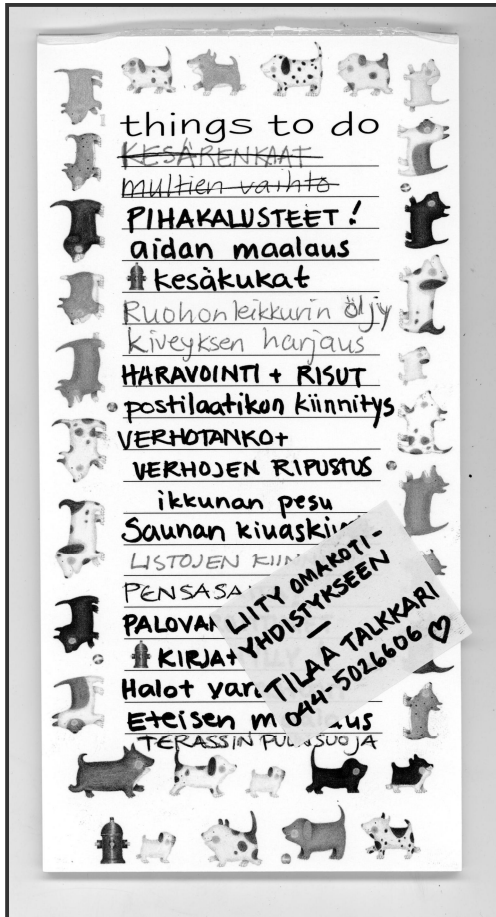 things to do
KESÄRENKAAT
multien vaihto
PIHAKALUSTEET!
aidan maalaus
kesäkukat
Ruohonleikkurin öljy
kiveyksen harjaus
HARAVOINTI + RISUT
postilaatikon kiinnitys
VERHOTANKO+
VERHOJEN RIPUSTUS
ikkunan pesu
Saunan
LISTOJEN
KIRJA
Halot
Eteisen
TERASSIN
LIITY OMAKOTI-
YHDISTYKSEEN
—
TILAA TALKKARI
044-5026606 ♡